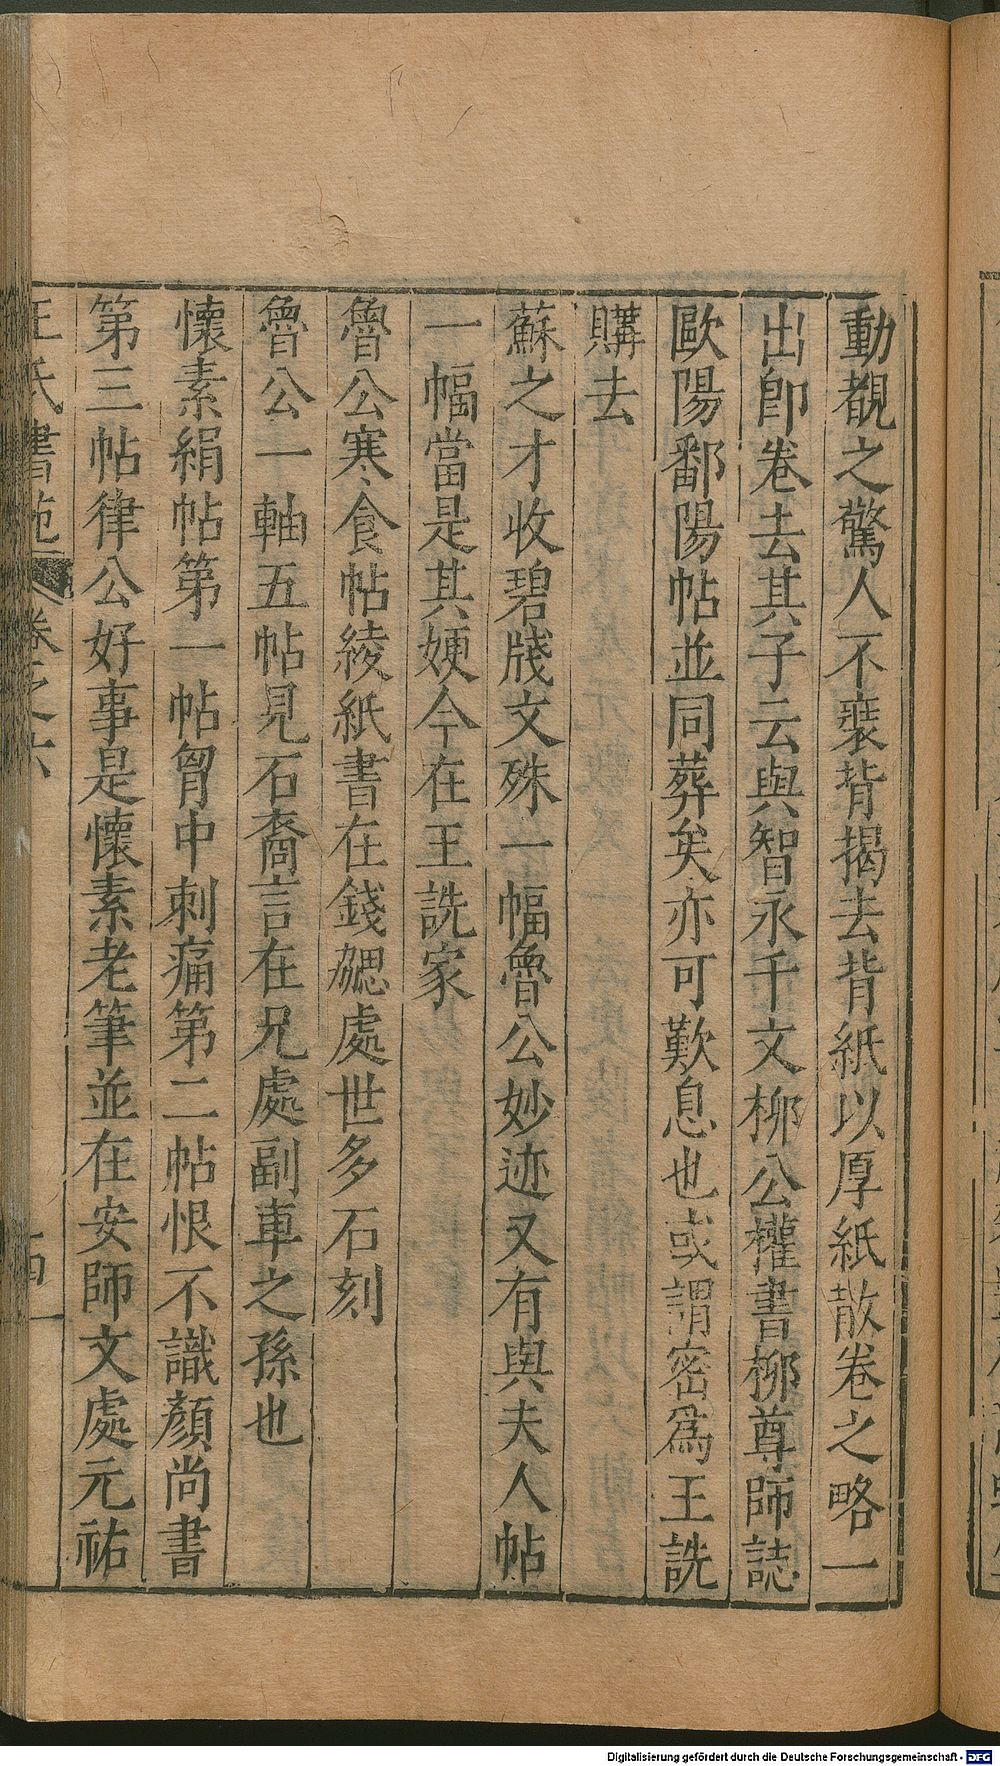 動覩之驚人不裝背揭去背紙以厚紙散卷之略一
出卽卷去其子云與智永千文柳公權書柳尊師誌
歐陽鄱陽帖並同葬矣亦可歎息也或謂密爲王詵
購去
蘇之才收碧牋文殊一幅魯公妙迹又有與夫人帖
一幅當是其㛐今在王詵家
魯公寒食帖綾紙書在錢勰處世多石刻
魯公一軸五帖見石裔言在兄處副車之孫也
懷素絹帖第一帖胷中刺痛第二帖恨不識顏尚書
第三帖律公好事是懷素老筆並在安師文處元祐
王氏書苑 卷之六
Digitalisierung gefördert durch die Deutsche Forschungsgemeinschaft - DFG